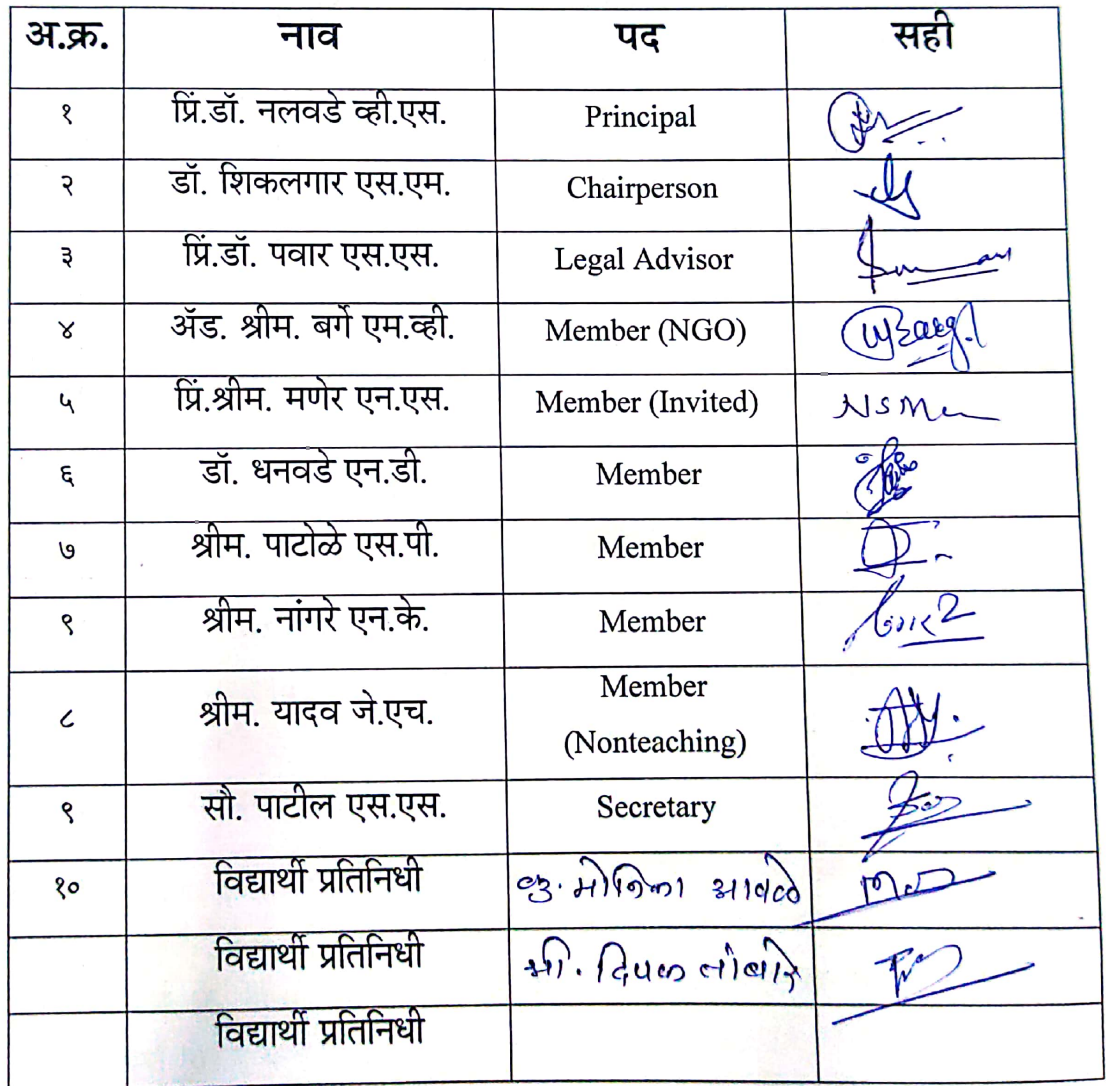 अ.क्र. नाव पद सही
१ प्रिं.डॉ. नलवडे व्ही.एस. Principal
२ डॉ. शिकलगार एस.एम. Chairperson
३ प्रिं.डॉ. पवार एस.एस. Legal Advisor
४ ॲड. श्रीम. बर्गे एम.व्ही. Member (NGO)
५ प्रिं.श्रीम. मणेर एन.एस. Member (Invited)
६ डॉ. धनवडे एन.डी. Member
७ श्रीम. पाटोळे एस.पी. Member
९ श्रीम. नांगरे एन.के. Member
८ श्रीम. यादव जे.एच. Member
(Nonteaching)
९ सौ. पाटील एस.एस. Secretary
१० विद्यार्थी प्रतिनिधी कु. मोनिका आवळे
विद्यार्थी प्रतिनिधी श्री. दिपक
विद्यार्थी प्रतिनिधी